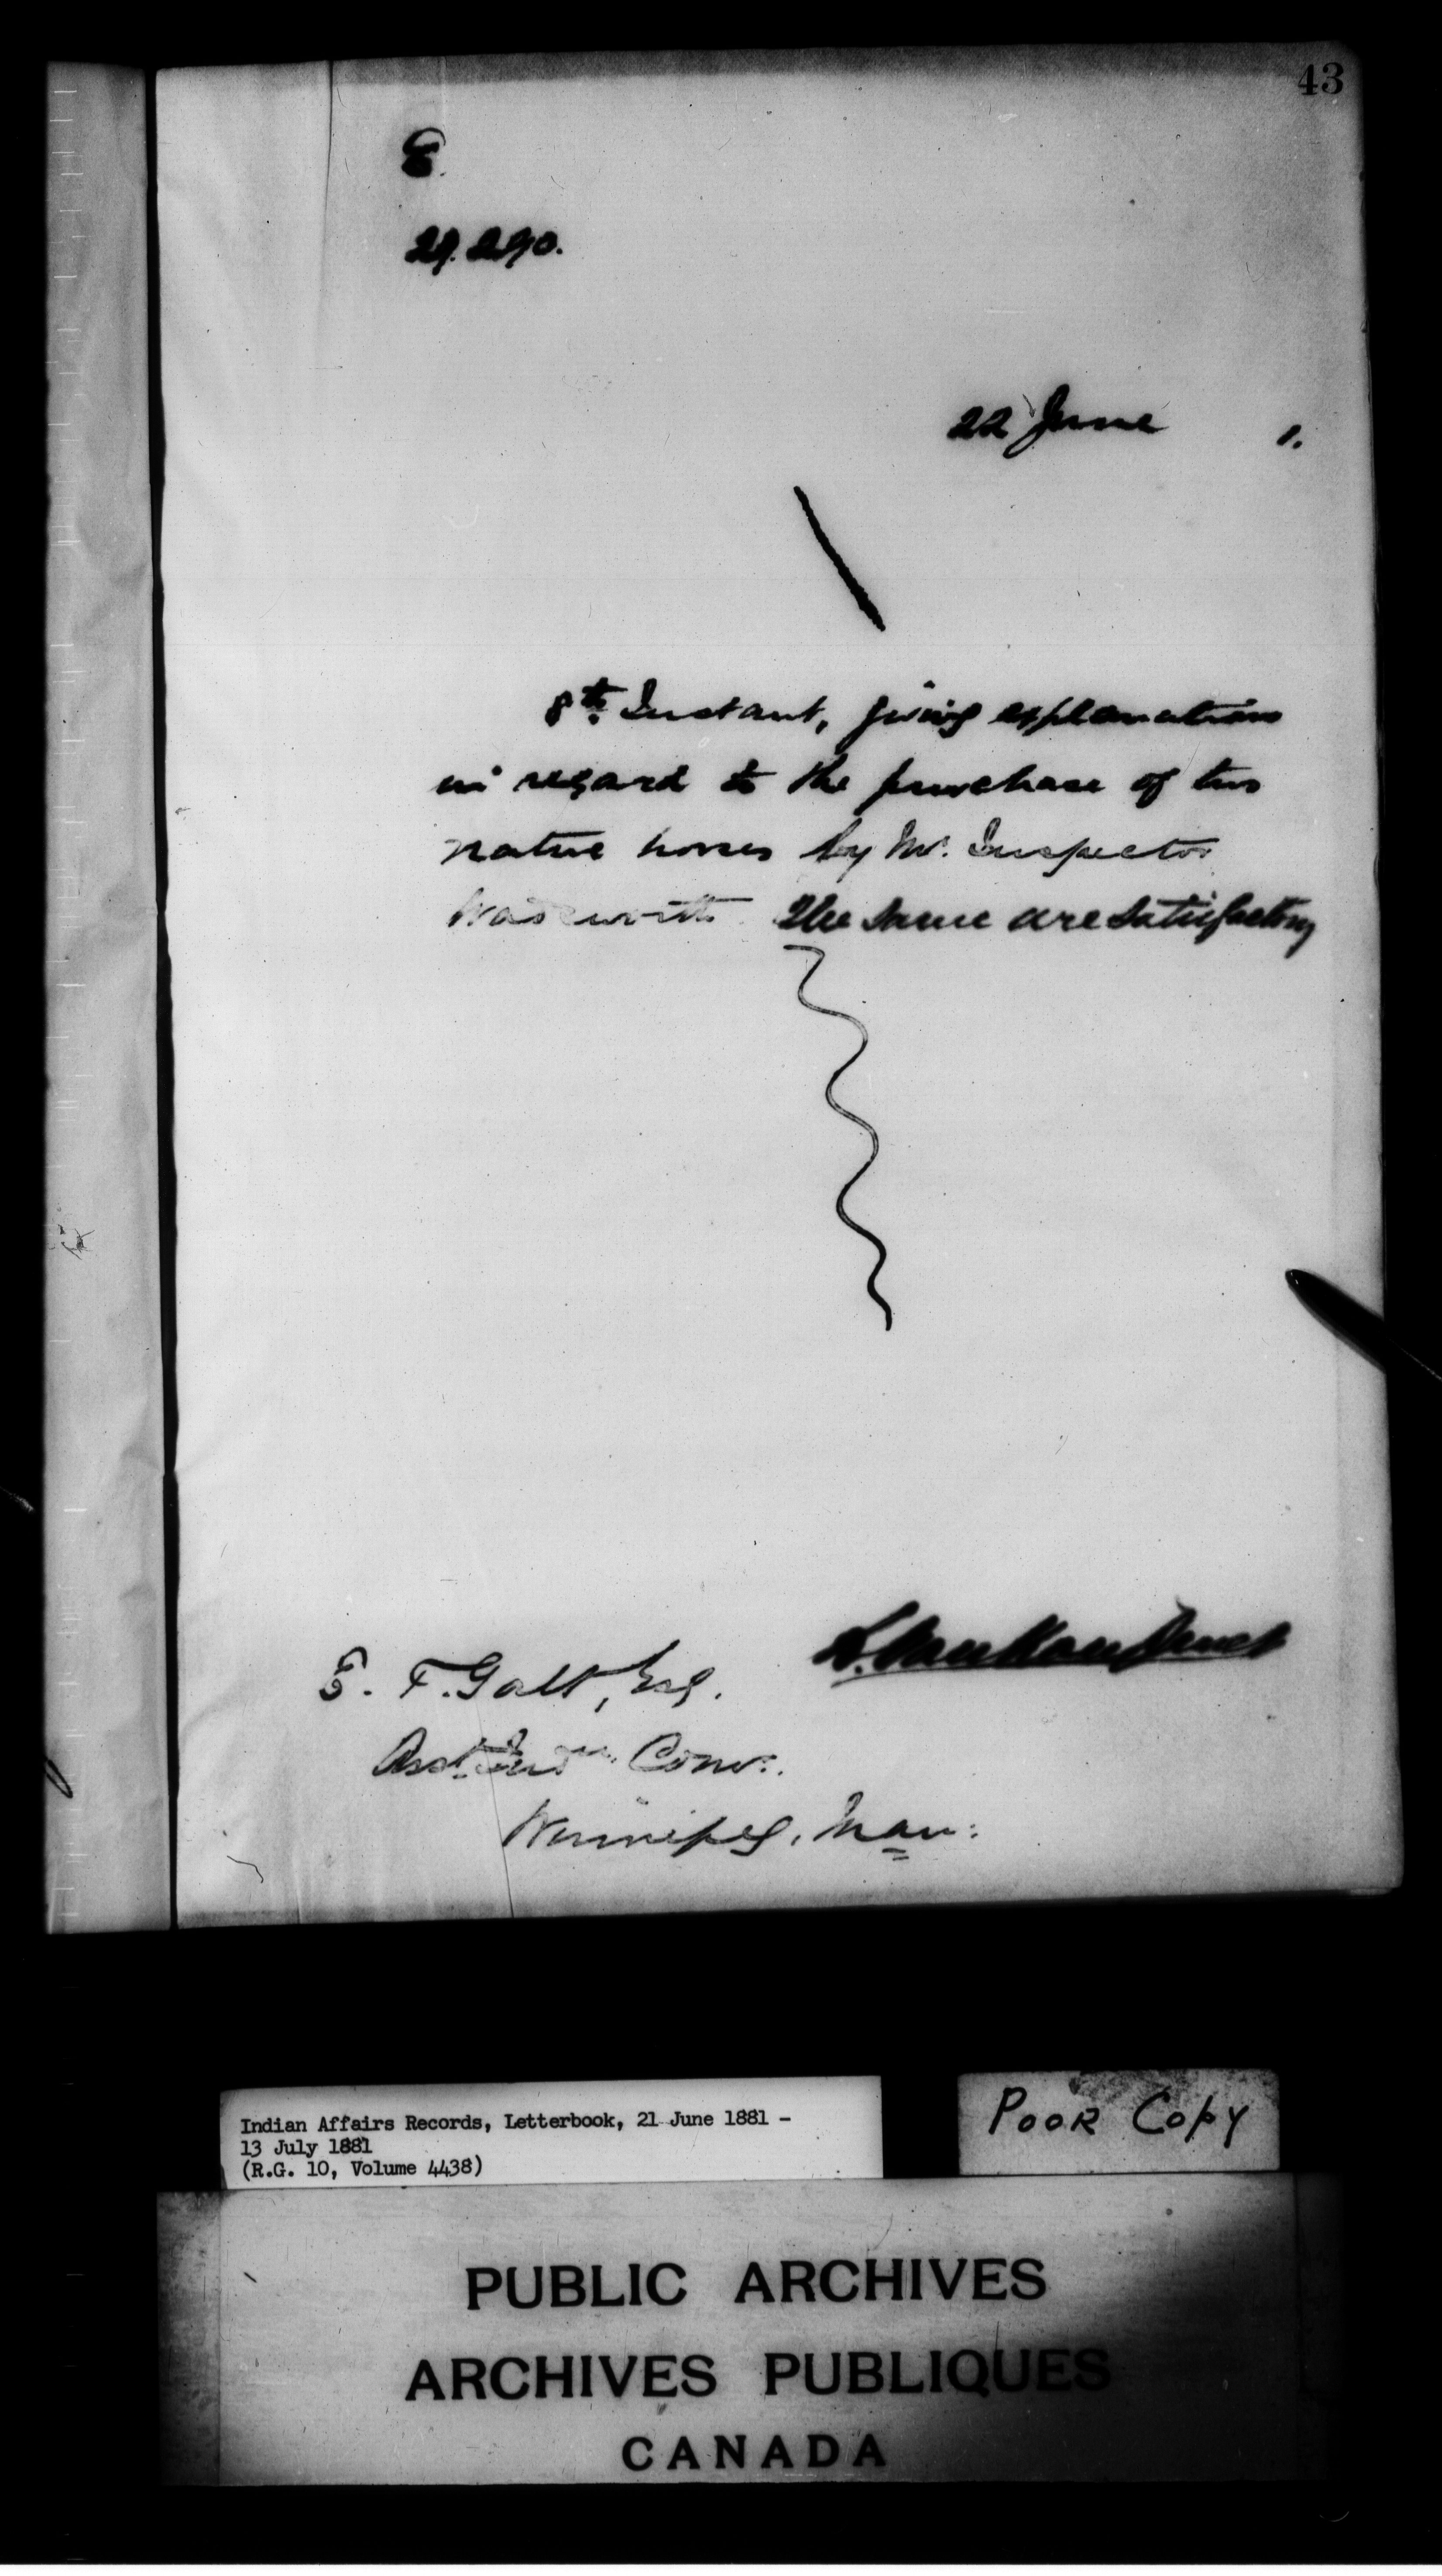 43
E.
29.290.
22 June 1.
8th Instant, giving explanations
in regard to the purchase of two
native horses by Mr. Inspector
Wadsworth The same are satisfactory
L. VanKoughnet
E. F. Galt, Esq.
Asst. Ind. Comr.
Winnipeg, Man:
Indian Affairs Records, Letterbook, 21 June 1881 -
13 July 1881
(R.G. 10, Volume 4438)
POOR COPY
PUBLIC ARCHIVES
ARCHIVES PUBLIQUES
CANADA